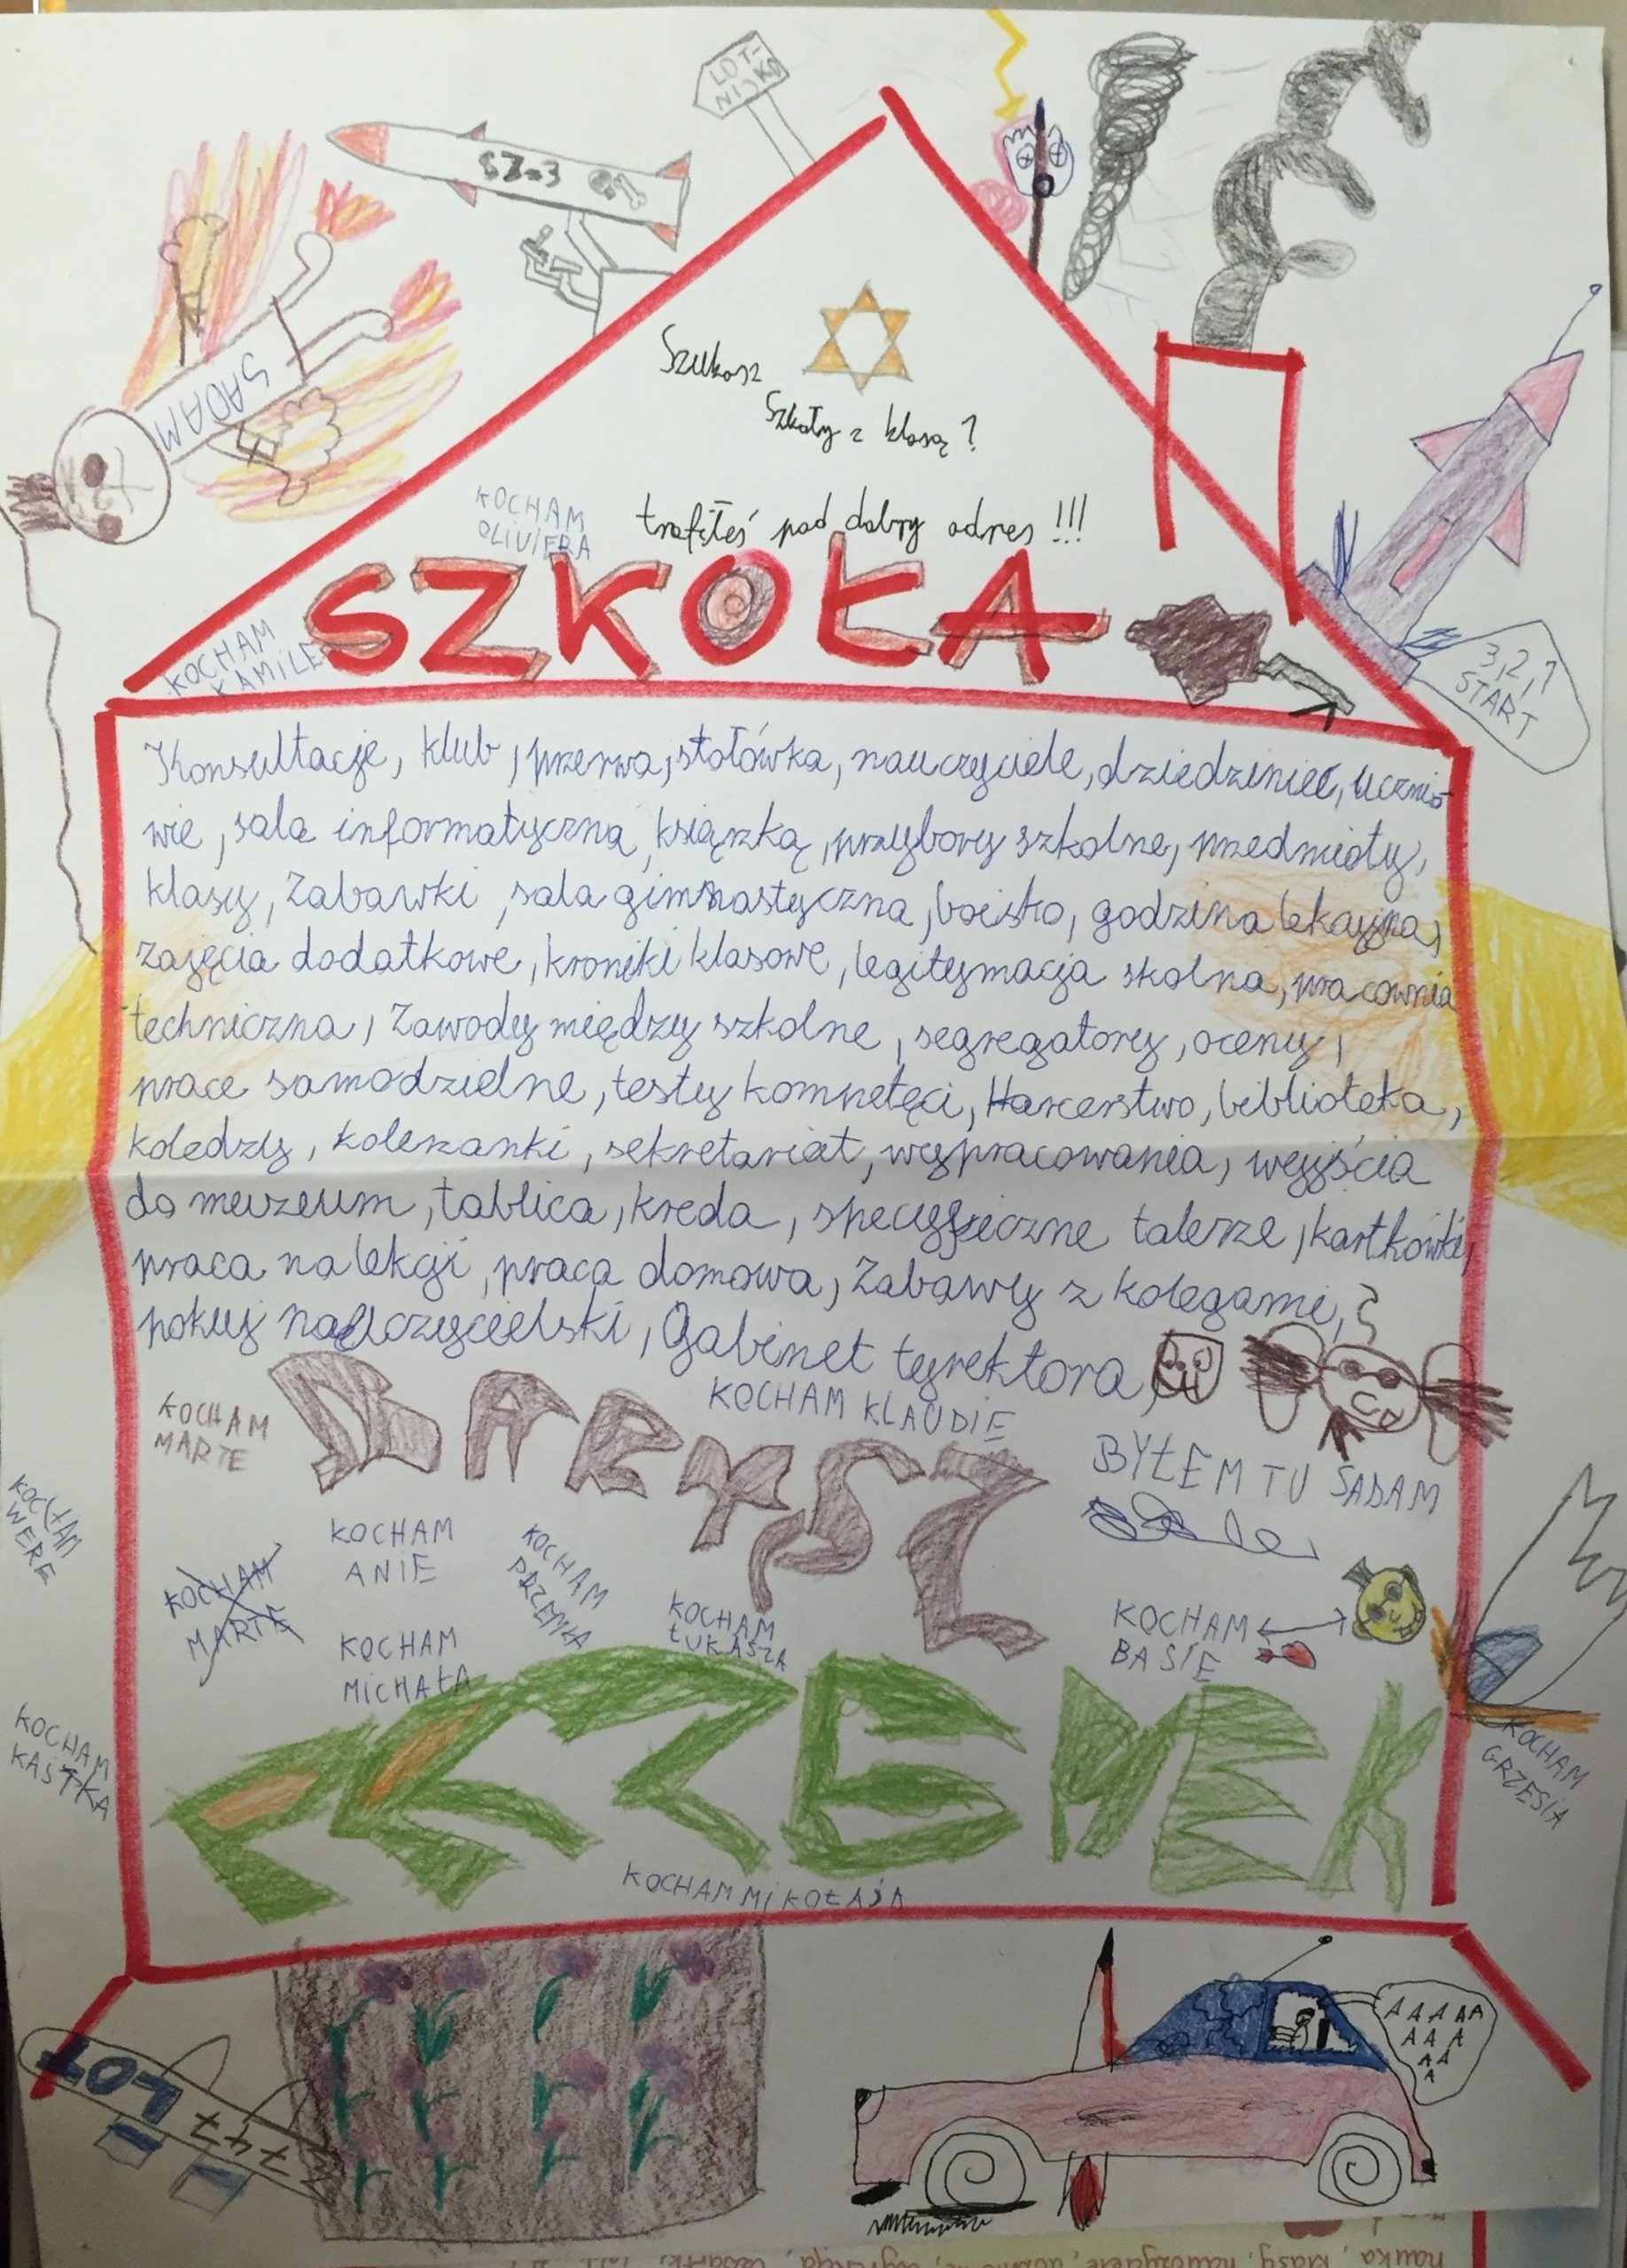 LOT-
NISKO
SZ-3
SADAM
Szukasz
Szkoły z klasą?
trafiłeś pod dobry adres!!!
KOCHAM
OLIWIERA
KOCHAM
KAMILE
SZKOŁA
3,2,1
START
Konsultacje, klub, przerwa, stołówka, nauczyciele, dziedziniec, ucznio-
wie, sala informatyczna, książką, przybory szkolne, przedmioty,
klasy, zabawki, sala gimnastyczna, boisko, godzina lekcyjna,
zajęcia dodatkowe, kroniki klasowe, legitymacja skolna, pracownia
techniczna, zawody między szkolne, segregatory, oceny,
prace samodzielne, testy kompetęci, Harcerstwo, biblioteka,
koledzy, koleżanki, sekretariat, wypracowania, wyjścia
do muzeum, tablica, kreda, specyficzne talerze, kartkówki,
praca na lekcji, praca domowa, zabawy z kolegami,
pokuj nauczycielski, Gabinet tyrektora,
KOCHAM
MARTE
BARYSZ
KOCHAM KLAUDIE
BYŁEM TU SADAM
KOCHAM
WERE
KOCHAM
MARTE
KOCHAM
ANIE
KOCHAM
PRZEMKA
KOCHAM
MICHAŁA
KOCHAM
ŁUKASZA
KOCHAM
BASIE
KOCHAM
KASTKA
KOCHAM
GRZESIA
KOCHAM MIKOŁAJA
LOT
747
AAAAA
AAA
AA
A
nauka, klasy, nauczyciele,